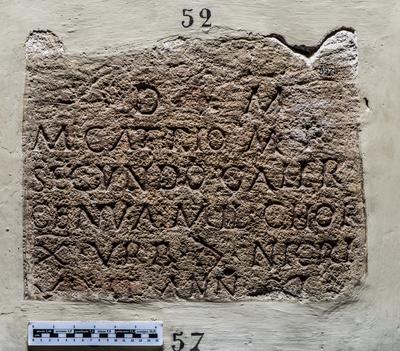 52
D M
M CATTIO M F
SECVNDO GALER
GENVA MIL CHOR
X VRB > NIGRI
ANN XI
57